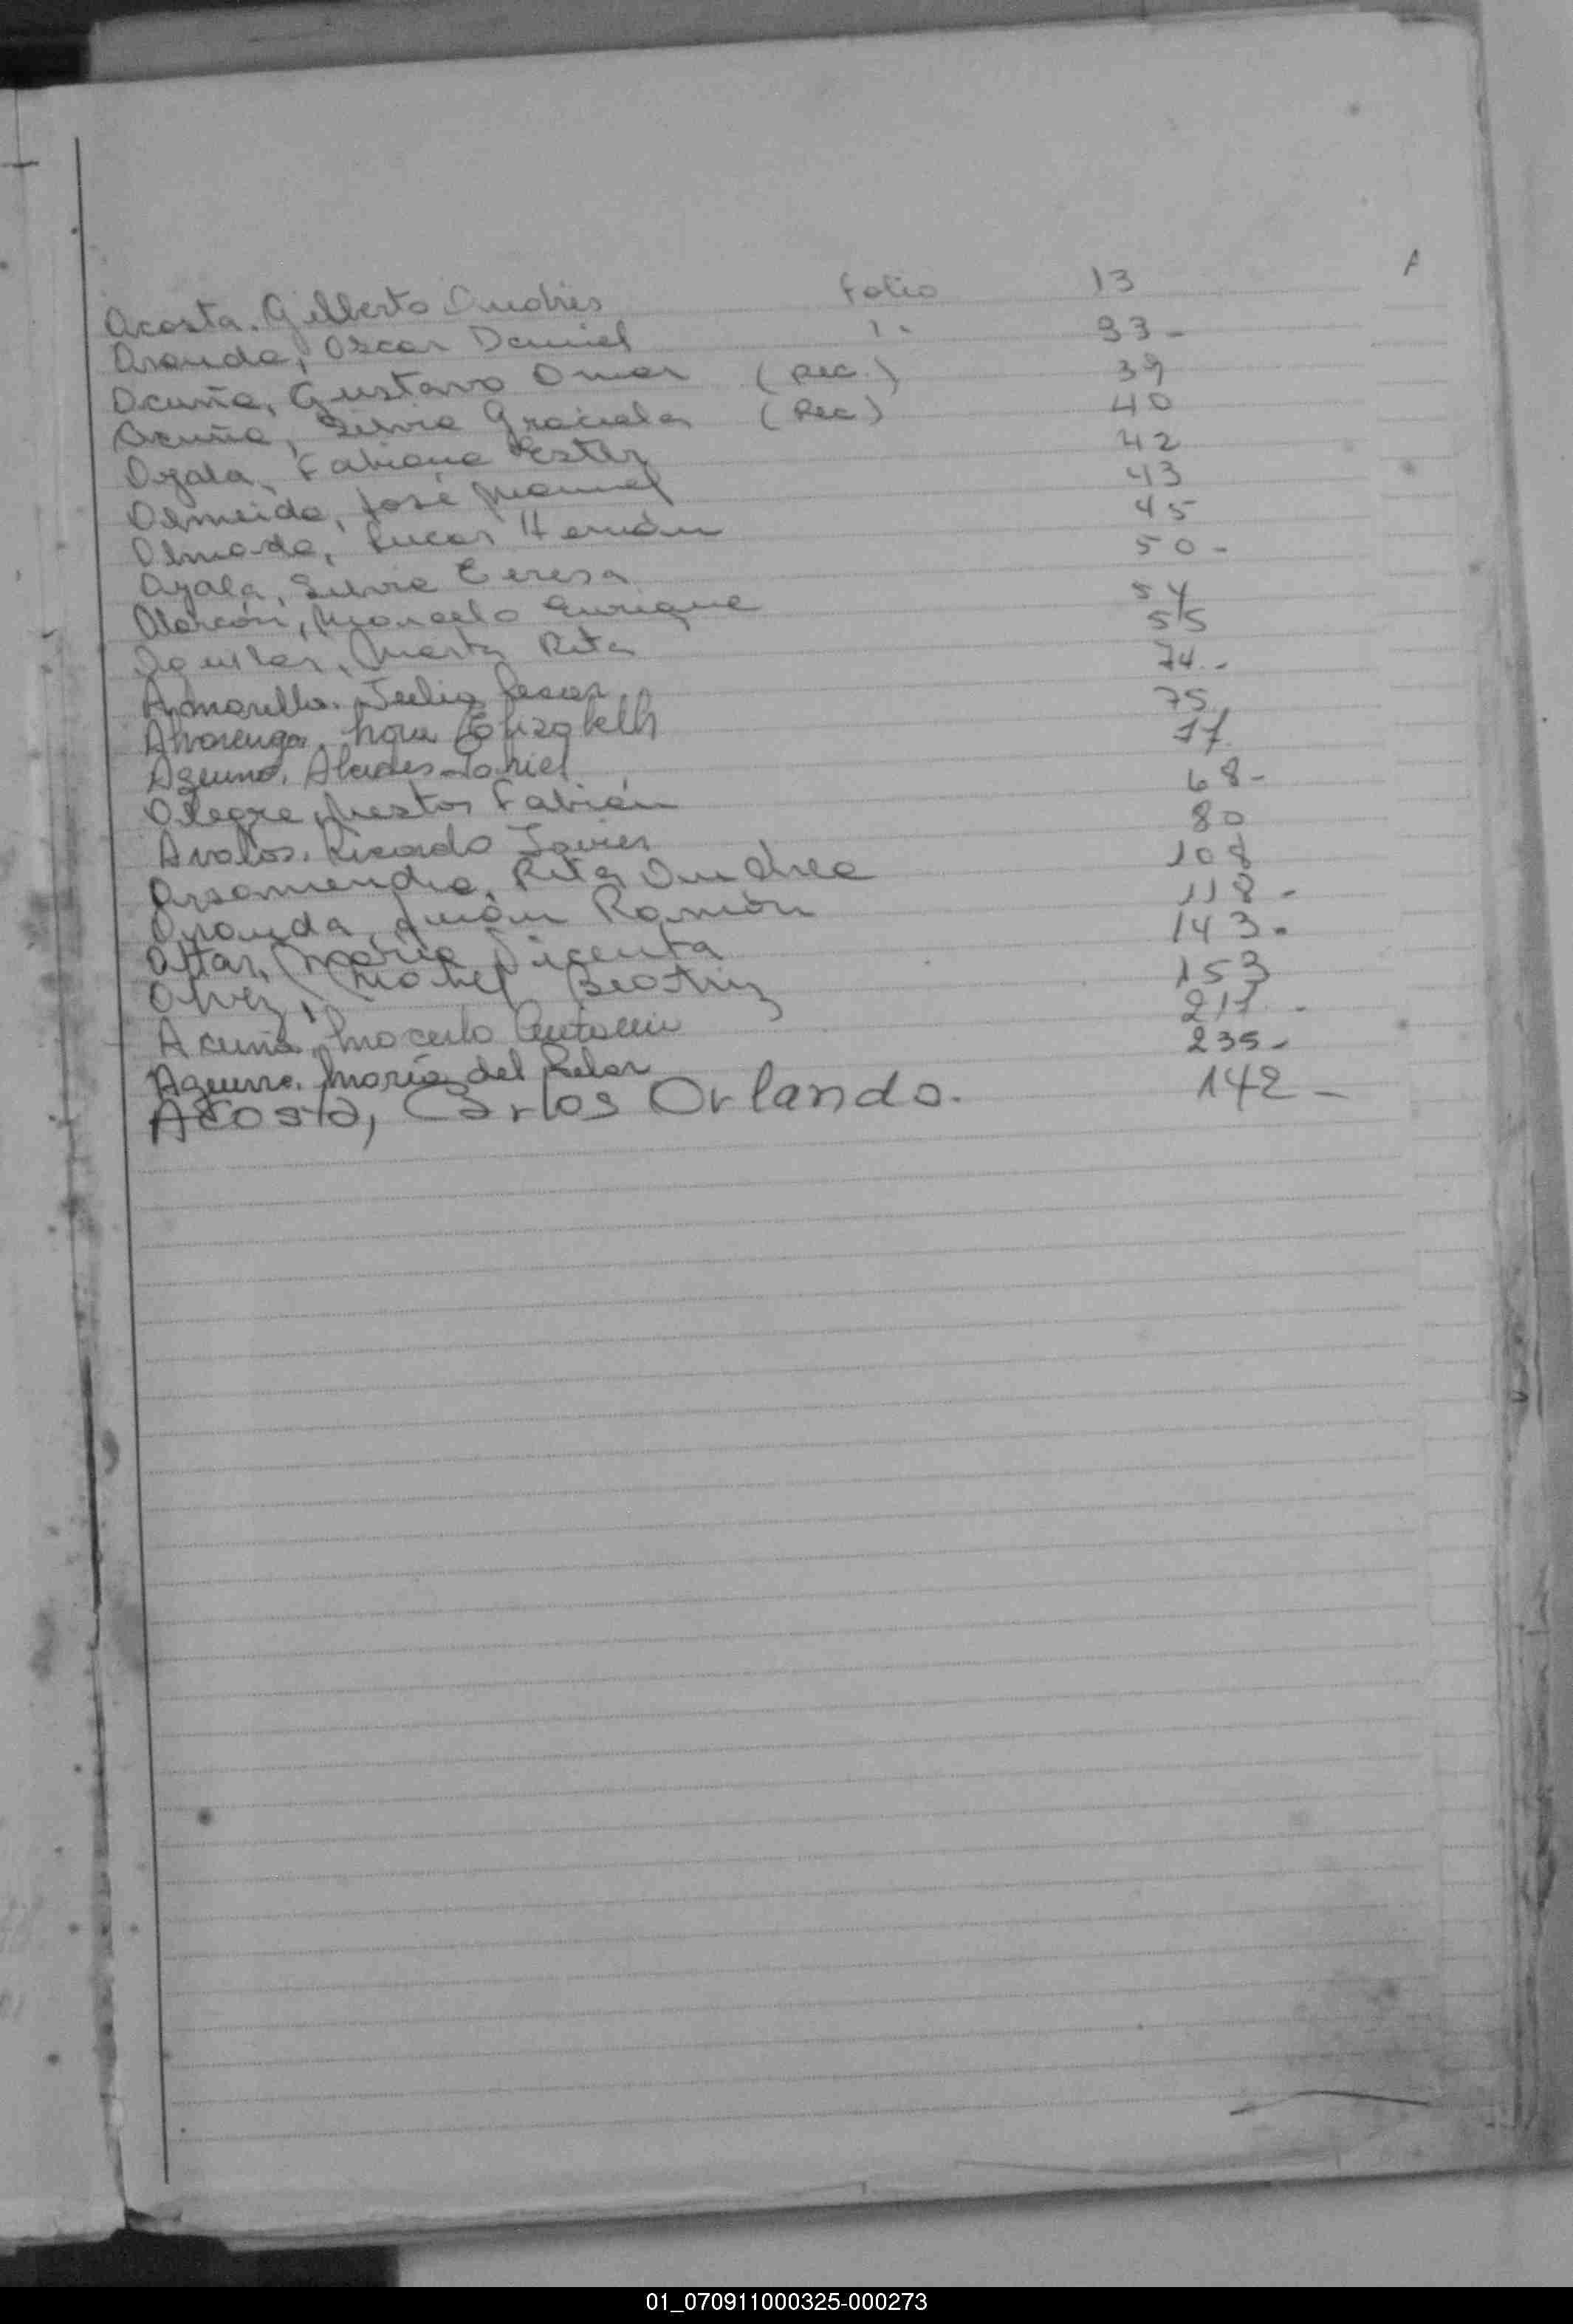 A
Acosta. Gilberto Andrés folio 13
Aranda, Oscar Daniel 1. 33-
Acuña, Gustavo Omar (Rec.) 39
Acuña, Silvia Graciela (Rec) 40
Ayala, Fabiana Ester 42
Almeida, José Manuel 43
Almada, Lucas Hernán 45
Ayala, Silvia Teresa 50-
Alarcón, Marcelo Enrique 54
Aguilar, Marta Rita 55
Amarilla. Julio Cesar 74.-
Alvarenga, Nora Elizabeth 75
Aquino. Alcides Daniel 77
Alegre, Nestor Fabián 68-
Avalos. Ricardo Javier 80
Arsamendia, Rita Andrea 108
Aranda, Juán Ramón 118-
Attar, María Vicenta 143.
Alvez, Mabel Beatriz 153
Acuña, Marcelo Antonio 217.-
Aguirre. María del Pilar 235-
Acosta, Carlos Orlando. 142-
01_070911000325-000273